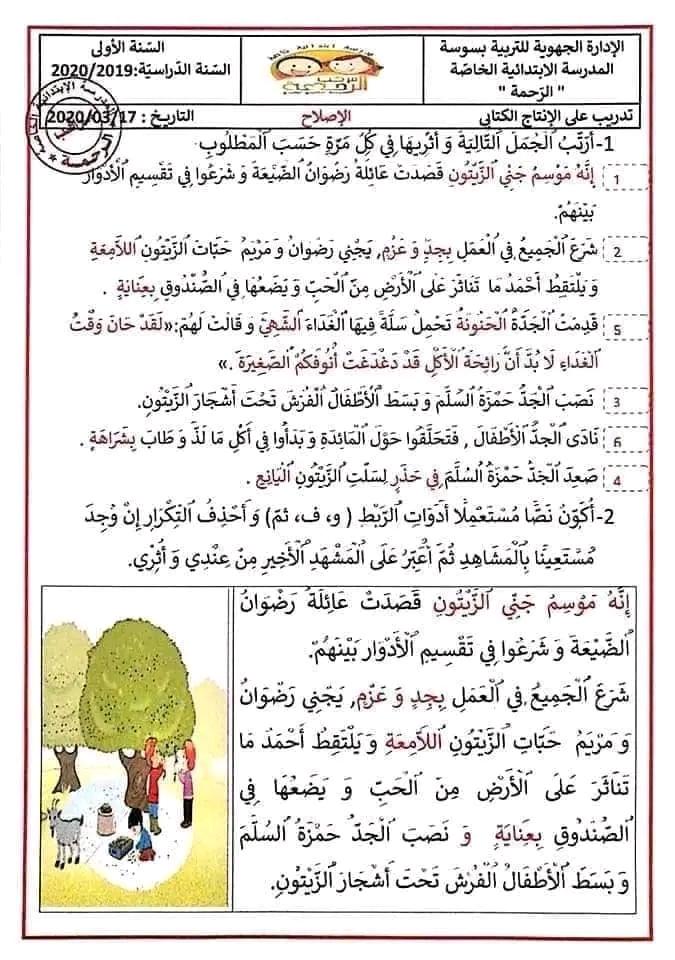 الإدارة الجهوية للتربية بسوسة
المدرسة الابتدائية الخاصّة
" الرّحمة "
السّنة الأولى
السّنة الدّراسيّة:2020/2019
تدريب على الإنتاج الكتابي
الإصلاح
التاريخ : 2020/03/17
1-أُرَتِّبُ ٱلْجُمَلَ ٱلتَّالِيَةَ وَ أُثْرِيهَا فِي كُلِّ مَرَّةٍ حَسَبَ ٱلْمَطْلُوبِ.
1 إِنَّهُ مَوْسِمُ جَنْيِ ٱلزَّيْتُونِ قَصَدَتْ عَائِلَةُ رَضْوَانُ ٱلضَّيْعَةَ وَ شَرَعُوا فِي تَقْسِيمِ ٱلْأَدْوَارِ
بَيْنَهُمْ.
2 شَرَعَ ٱلْجَمِيعُ فِي ٱلْعَمَلِ بِجِدٍّ وَ عَزْمٍ, يَجْنِي رَضْوَانُ وَ مَرْيَمُ حَبَّاتِ ٱلزَّيْتُونِ ٱللَّامِعَةِ
وَ يَلْتَقِطُ أَحْمَدُ مَا تَنَاثَرَ عَلَى ٱلْأَرْضِ مِنَ ٱلْحَبِّ وَ يَضَعُهَا فِي ٱلصُّنْدُوقِ بِعِنَايَةٍ .
5 قَدِمَتْ ٱلْجَدَّةُ ٱلْحَنُونَةُ تَحْمِلُ سَلَّةً فِيهَا ٱلْغَدَاءَ ٱلشَّهِيَّ وَ قَالَتْ لَهُمْ:«لَقَدْ حَانَ وَقْتُ
ٱلْغَدَاءِ لَا بُدَّ أَنَّ رَائِحَةَ ٱلْأَكْلِ قَدْ دَغْدَغَتْ أُنُوفَكُمْ ٱلصَّغِيرَةَ .»
3 نَصَبَ ٱلْجَدُّ حَمْزَةُ ٱلسُّلَّمَ وَ بَسَطَ ٱلْأَطْفَالُ ٱلْفُرُشَ تَحْتَ أَشْجَارِ ٱلزَّيْتُونِ.
6 نَادَى ٱلْجَدُّ ٱلْأَطْفَالَ , فَتَحَلَّقُوا حَوْلَ ٱلْمَائِدَةِ وَ بَدَأُوا فِي أَكْلِ مَا لَذَّ وَ طَابَ بِشَرَاهَةٍ .
4 صَعِدَ ٱلْجَدُّ حَمْزَةُ ٱلسُّلَّمَ فِي حَذَرٍ لِسَلْتِ ٱلزَّيْتُونِ ٱلْيَانِعِ .
2-أُكَوِّنُ نَصًّا مُسْتَعْمِلًا أَدَوَاتِ ٱلرَّبْطِ ( و، ف، ثمّ) وَ أَحْذِفُ ٱلتِّكْرَارِ إِنْ وُجِدَ
مُسْتَعِينًا بِٱلْمَشَاهِدِ ثُمَّ أُعَبِّرُ عَلَى ٱلْمَشْهَدِ ٱلْأَخِيرِ مِنْ عِنْدِي وَ أُثْرِي.
إِنَّهُ مَوْسِمُ جَنْيِ ٱلزَّيْتُونِ قَصَدَتْ عَائِلَةُ رَضْوَانُ
ٱلضَّيْعَةَ وَ شَرَعُوا فِي تَقْسِيمِ ٱلْأَدْوَارِ بَيْنَهُمْ.
شَرَعَ ٱلْجَمِيعُ فِي ٱلْعَمَلِ بِجِدٍّ وَ عَزْمٍ, يَجْنِي رَضْوَانُ
وَ مَرْيَمُ حَبَّاتِ ٱلزَّيْتُونِ ٱللَّامِعَةِ وَ يَلْتَقِطُ أَحْمَدُ مَا
تَنَاثَرَ عَلَى ٱلْأَرْضِ مِنَ ٱلْحَبِّ وَ يَضَعُهَا فِي
ٱلصُّنْدُوقِ بِعِنَايَةٍ وَ نَصَبَ ٱلْجَدُّ حَمْزَةُ ٱلسُّلَّمَ
وَ بَسَطَ ٱلْأَطْفَالُ ٱلْفُرُشَ تَحْتَ أَشْجَارِ ٱلزَّيْتُونِ.